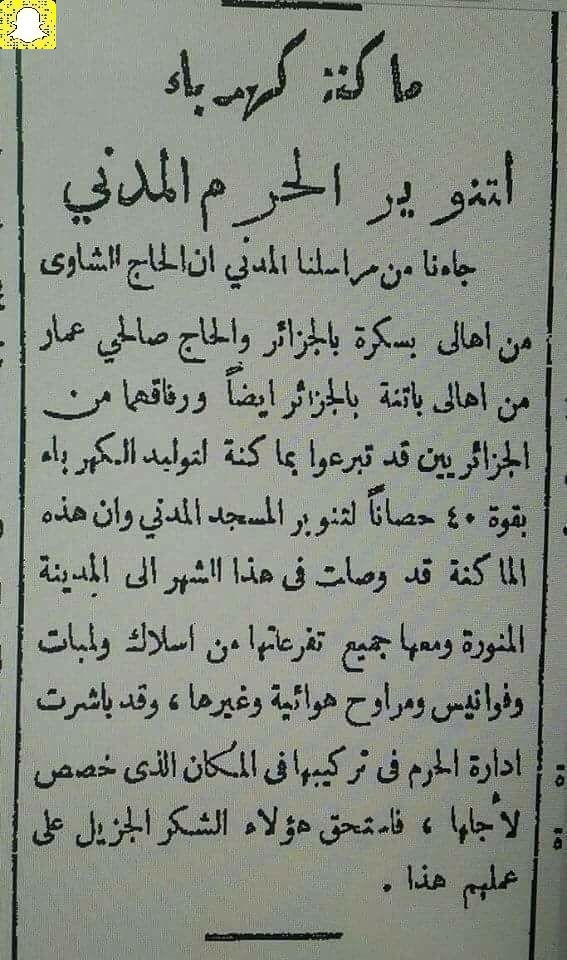 ماكنة كهرباء
لتنوير الحرم المدني
جاءنا من مراسلنا المدني ان الحاج الشاوى
من اهالى بسكرة بالجزائر والحاج صالحي عمار
من اهالى باتنة بالجزائر ايضاً ورفاقهما من
الجزائريين قد تبرعوا بماكنة لتوليد الكهرباء
بقوة ٤٠ حصاناً لتنوير المسجد المدني وان هذه
الماكنة قد وصلت فى هذا الشهر الى المدينة
المنورة ومعها جميع تفرعاتها من اسلاك ولمبات
وفوانيس ومراوح هوائية وغيرها ، وقد باشرت
ادارة الحرم فى تركيبها فى المكان الذى خصص
لأجلها ، فاستحق هؤلاء الشكر الجزيل على
عملهم هذا .